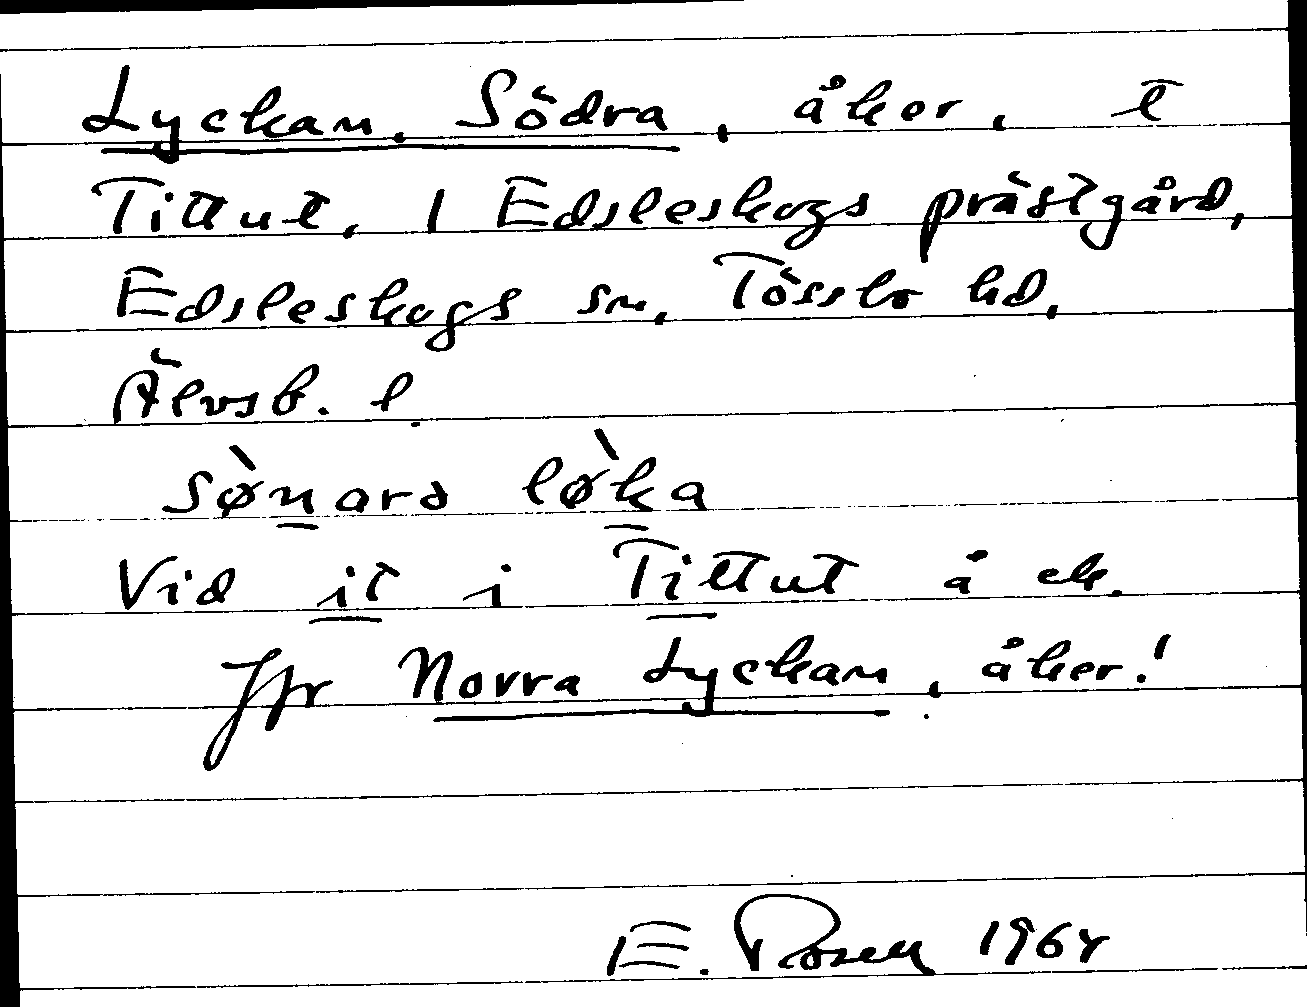 Lyckan, Södra, åker, t
Tittut, 1 Edsleskogs prästgård,
Edsleskogs sn, Tössbo hd,
Älvsb. l.
sø̀nara lø̀ka
Vid it i Tittut å ek.
Jfr Norra Lyckan, åker!
E. Rosell 1964